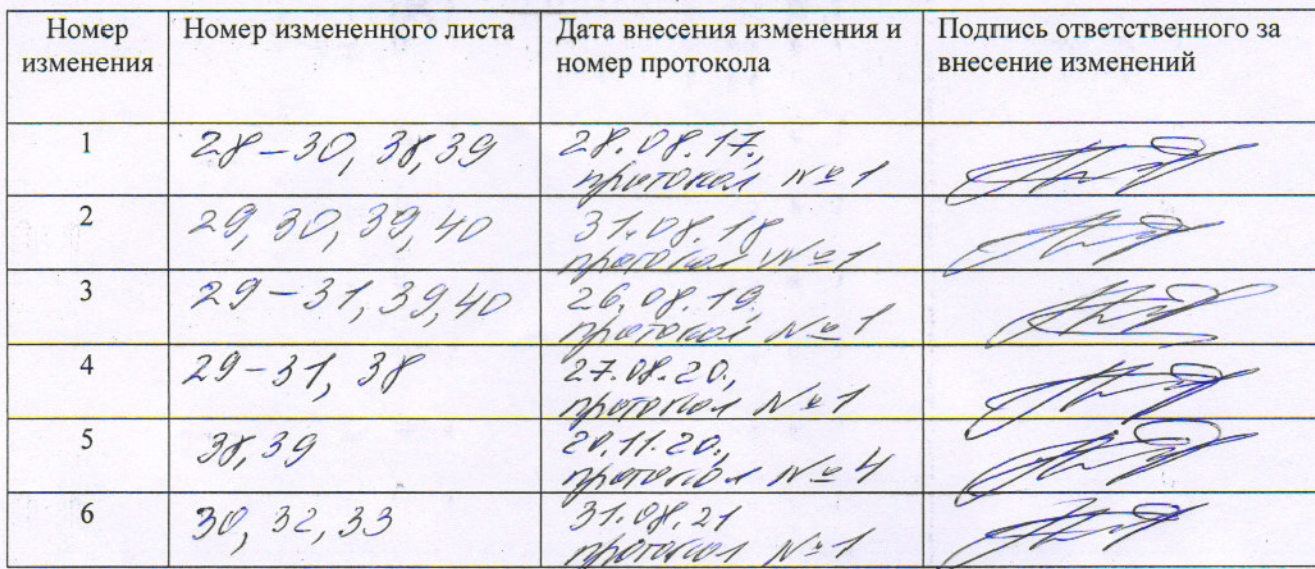 Номер изменения | Номер измененного листа | Дата внесения изменения и номер протокола | Подпись ответственного за внесение изменений
1 | 28-30, 38,39 | 28.08.17, протокол №1
2 | 29, 30, 39, 40 | 31.08.18 протокол №1
3 | 29-31, 39,40 | 26.08.19. протокол №1
4 | 29-31, 38 | 27.08.20., протокол №1
5 | 38,39 | 20.11.20., протокол №4
6 | 30, 32, 33 | 31.08.21 протокол №1